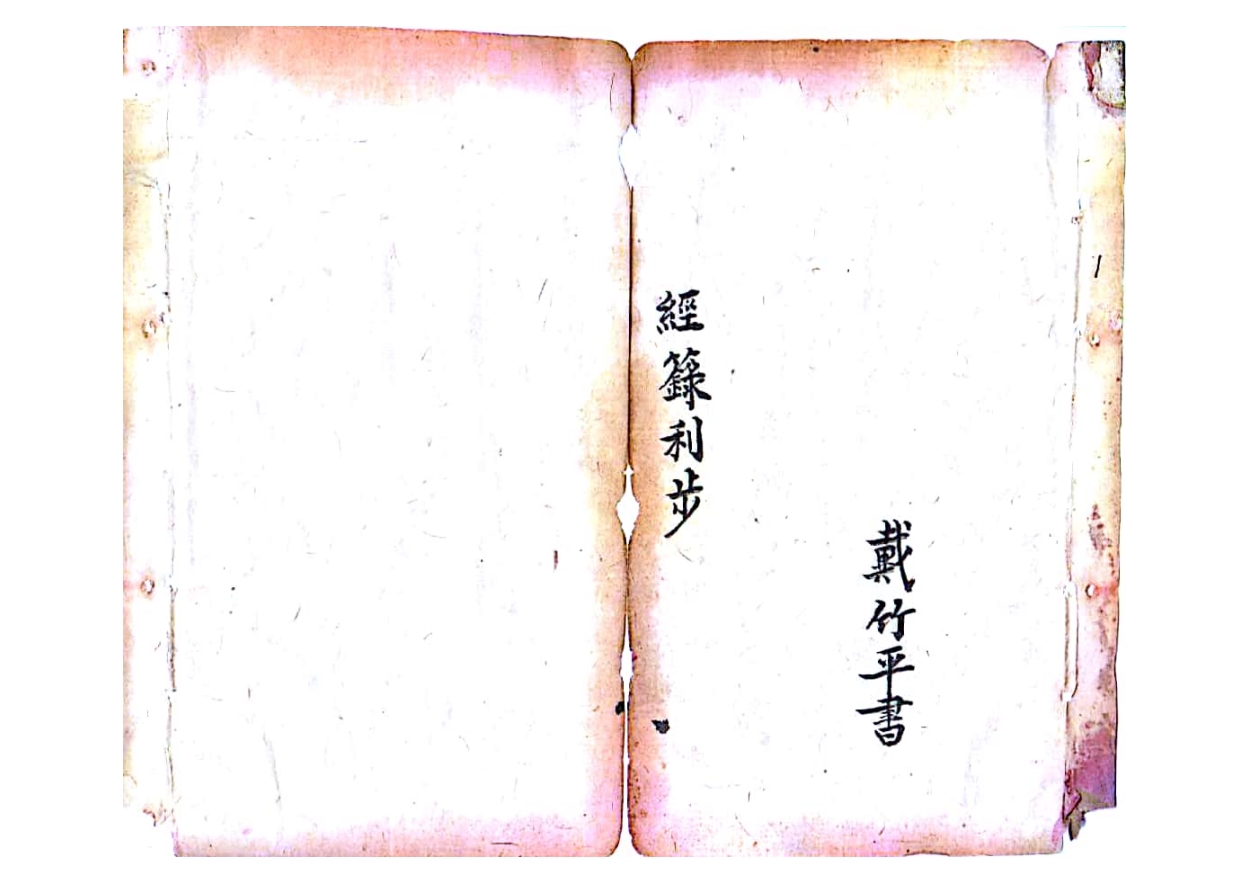 1
戴竹平書
經籙利步